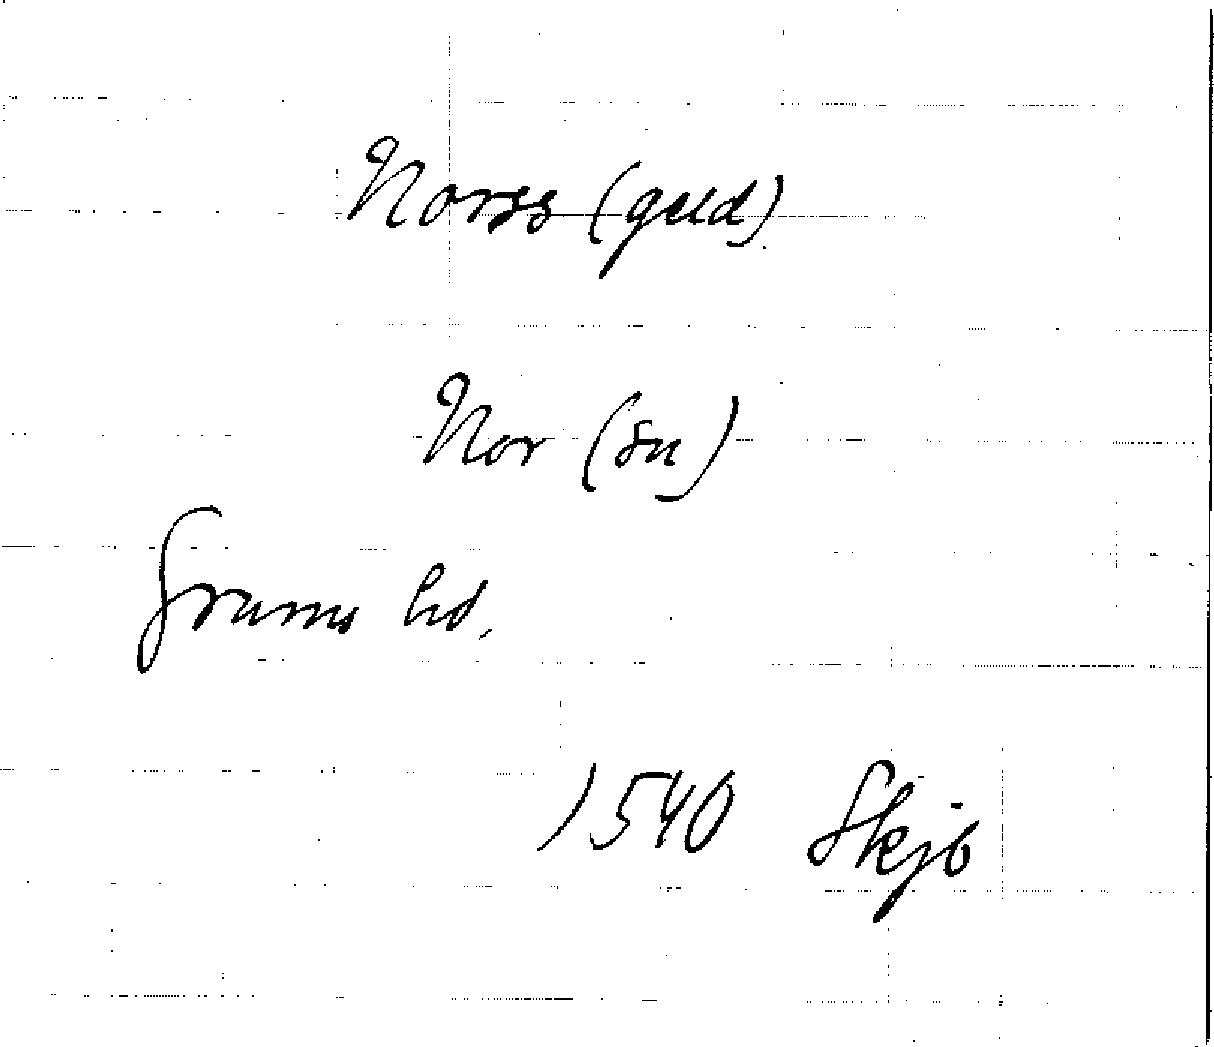 Norss (geld)
Nor (sn)
Grums hd.
1540 Skjb